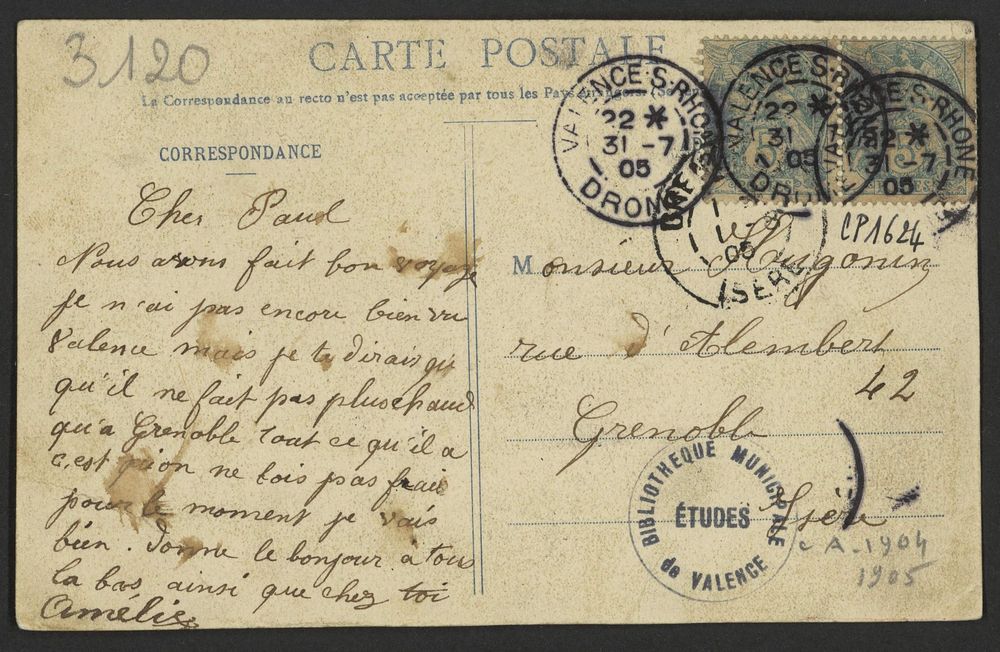 3120
CARTE POSTALE
La Correspondance au recto n'est pas acceptée par tous les Pays
CORRESPONDANCE
Cher Paul
Nous avons fait bon voyage
je n'ai pas encore bien vu
Valence mais je te dirais qu
qu'il ne fait pas plus chaud
qu'a Grenoble tout ce qu'il a
c'est qion ne bois pas frais
pour le moment je vais
bien. Donne le bonjour a tous
la bas ainsi que chez toi
Amélie
VALENCE-S-RHONE
22 *
31 -7
05
DROME
VALENCE S-RHONE
22 *
31
05
DROME
VALENCE-S-RHONE
22 *
31-7
05
05
ISERE
CP1624
Monsieur Hugonin
rue d'Alembert
42
Grenoble
Isère
BIBLIOTHEQUE MUNICIPALE
ÉTUDES
de VALENCE
c A-1904
1905